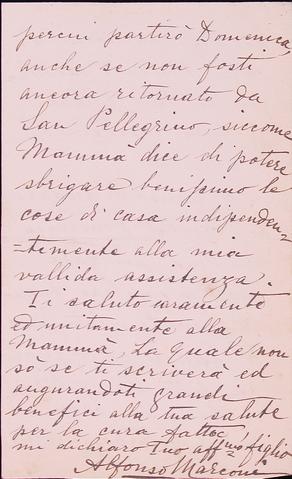 perciò partirò Domenica,
anche se non fosti
ancora ritornato da
San Pellegrino, siccome
Mamma dice di potere
sbrigare benissimo le
cose di casa indipenden=
=temente alla mia
vallida assistenza.
Ti saluto caramente
ed unitamente alla
Mammà, la quale non
sò se ti scriverà ed
augurandoti grandi
benefici alla tua salute
per la cura fatta
mi dichiaro Tuo aff.mo figlio
Alfonso Marconi